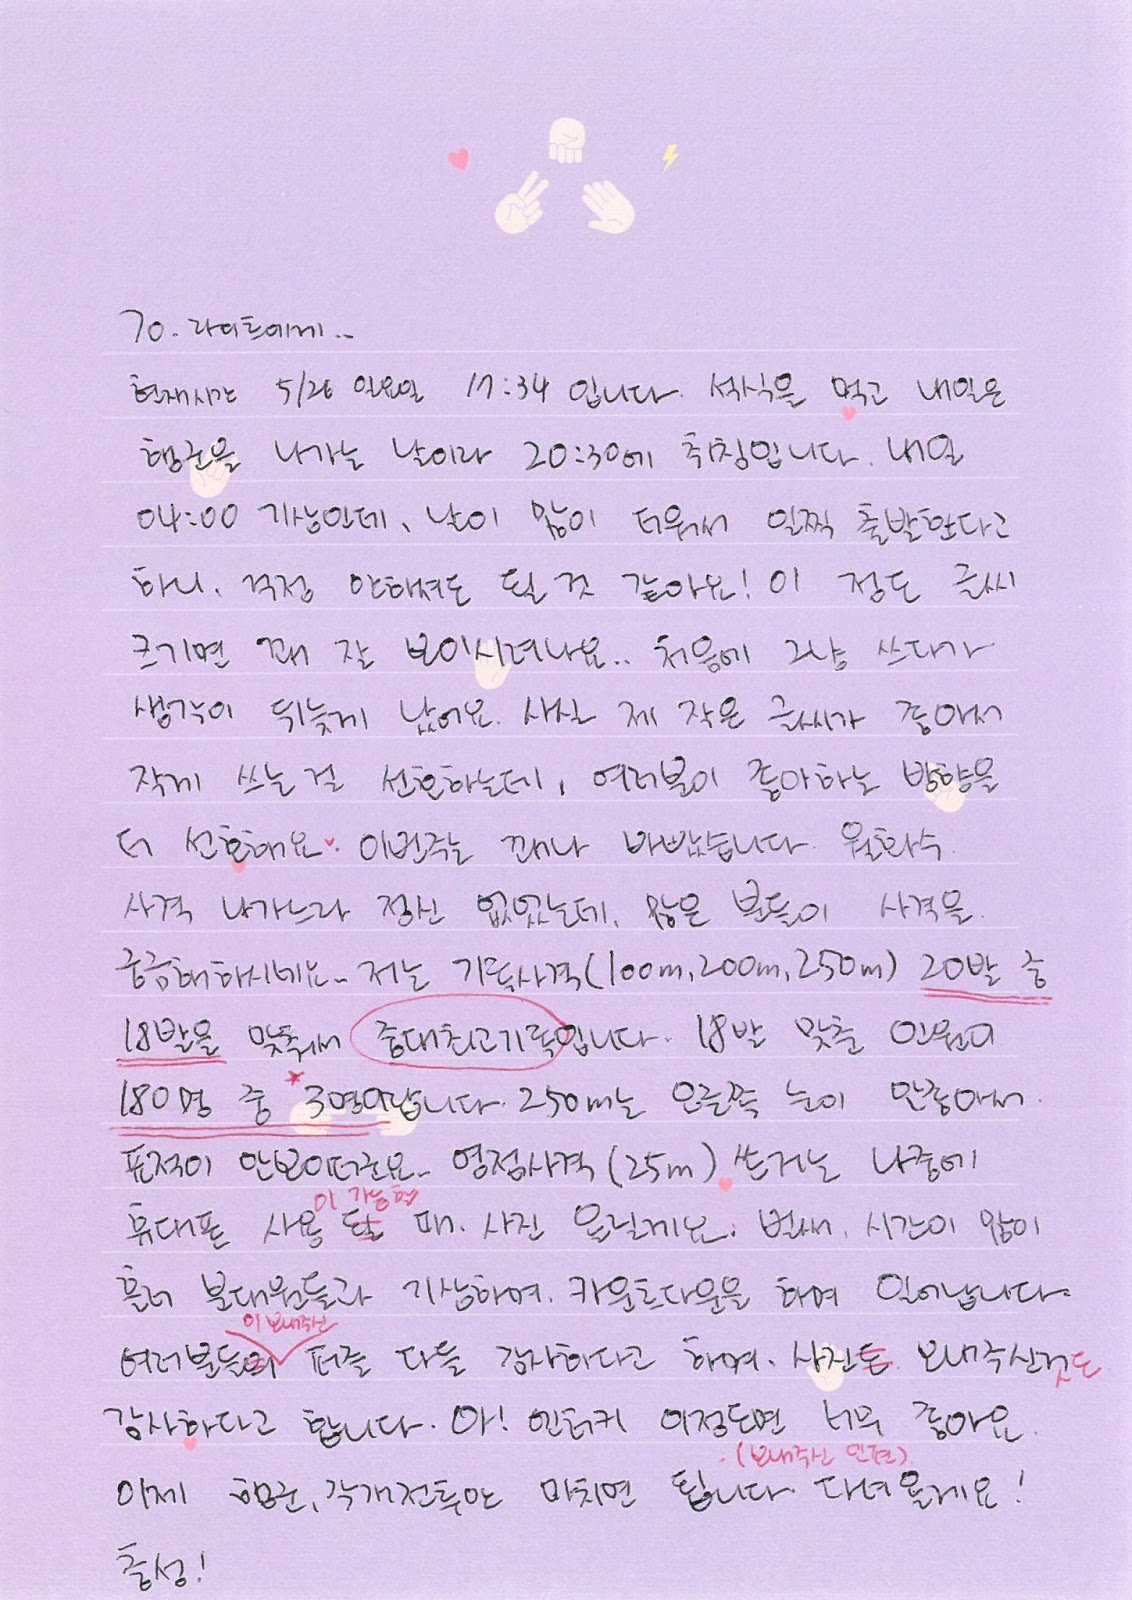 To. 라이트에게..
현재시간 5/26 일요일 17:34 입니다. 석식을 먹고 내일은
행군을 나가는 날이라 20:30에 취침입니다. 내일
04:00 기상인데, 날이 많이 더워서 일찍 출발한다고
하니, 걱정 안하셔도 될 것 같아요! 이 정도 글씨
크기면 꽤 잘 보이시려나요.. 처음에 그냥 쓰다가
생각이 뒤늦게 났어요. 사실 제 작은 글씨가 좋아서
작게 쓰는 걸 선호하는데, 여러분이 좋아하는 방향을
더 선호해요. 이번주는 꽤나 바빴습니다. 월화수
사격 나가느라 정신 없었는데, 많은 분들이 사격을
궁금해하시네요.. 저는 기록사격(100m,200m,250m) 20발 중
18발을 맞춰서 중대최고기록입니다. 18발 맞춘 인원이
180명 중 3명이랍니다. 250m는 오른쪽 눈이 안좋아서
표적이 안보이더군요.. 영점사격(25m) 쏜거는 나중에
이 가능할
휴대폰 사용 될 때. 사진 올릴게요. 벌써, 시간이 많이
흘러 분대원들과 기상하며. 카운트다운을 하며 일어납니다.
이 보내주신
여러분들의 퍼즐 다들 감사하다고 하며. 사진도 보내주신것도
감사하다고 합니다. 아! 인터커 이정도면 너무 좋아요.
(보내주신 인편)
이제 행군, 각개전투만 마치면 됩니다. 다녀올게요!
충성!